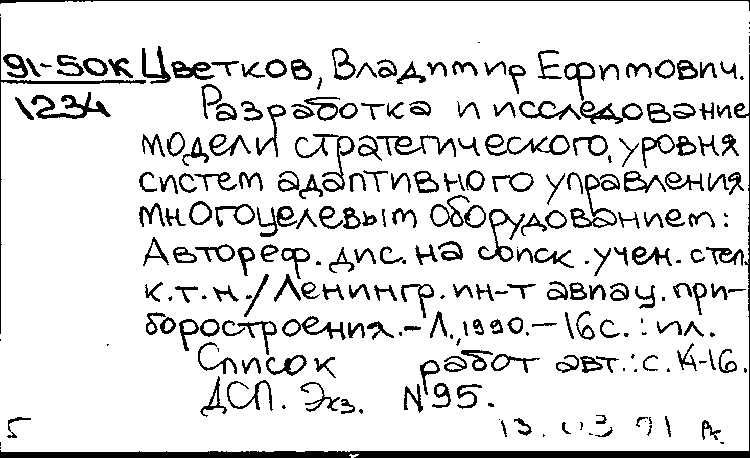 91-50К Цветков, Владимир Ефимович.
1234 Разработка и исследование
модели стратегического, уровня
систем адаптивного управления
многоцелевым оборудованием:
Автореф. дис. на соиск. учен. степ.
к.т.н. / Ленингр. ин-т авиац. при-
боростроения. - Л., 1990. - 16 с. : ил.
Список работ авт.: с. 14-16.
ДСП. Экз. N 95.
5 13.03 91